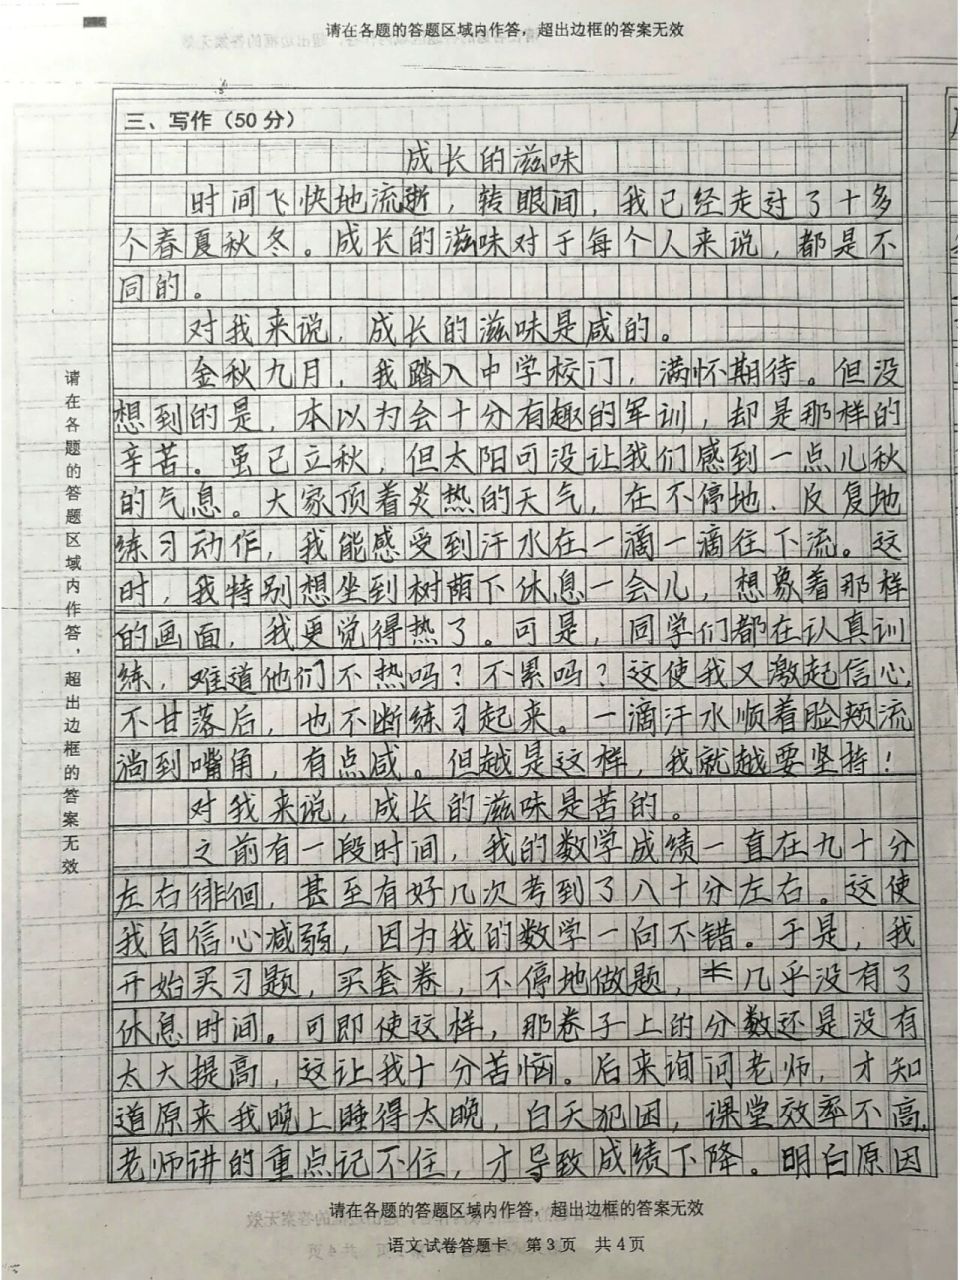 请在各题的答题区域内作答，超出边框的答案无效
三、写作（50分）
成长的滋味
时间飞快地流逝，转眼间，我已经走过了十多
个春夏秋冬。成长的滋味对于每个人来说，都是不
同的。
对我来说，成长的滋味是咸的。
金秋九月，我踏入中学校门，满怀期待。但没
想到的是，本以为会十分有趣的军训，却是那样的
辛苦。虽已立秋，但太阳可没让我们感到一点儿秋
的气息。大家顶着炎热的天气，在不停地、反复地
练习动作，我能感受到汗水在一滴一滴往下流。这
时，我特别想坐到树荫下休息一会儿，想象着那样
的画面，我更觉得热了。可是，同学们都在认真训
练，难道他们不热吗？不累吗？这使我又激起信心，
不甘落后，也不断练习起来。一滴汗水顺着脸颊流
淌到嘴角，有点咸。但越是这样，我就越要坚持！
对我来说，成长的滋味是苦的。
之前有一段时间，我的数学成绩一直在九十分
左右徘徊，甚至有好几次考到了八十分左右。这使
我自信心减弱，因为我的数学一向不错。于是，我
开始买习题，买套卷，不停地做题，几乎没有了
休息时间。可即使这样，那卷子上的分数还是没有
太大提高，这让我十分苦恼。后来询问老师，才知
道原来我晚上睡得太晚，白天犯困，课堂效率不高，
老师讲的重点记不住，才导致成绩下降。明白原因
请在各题的答题区域内作答，超出边框的答案无效
请在各题的答题区域内作答，超出边框的答案无效
语文试卷答题卡 第3页 共4页